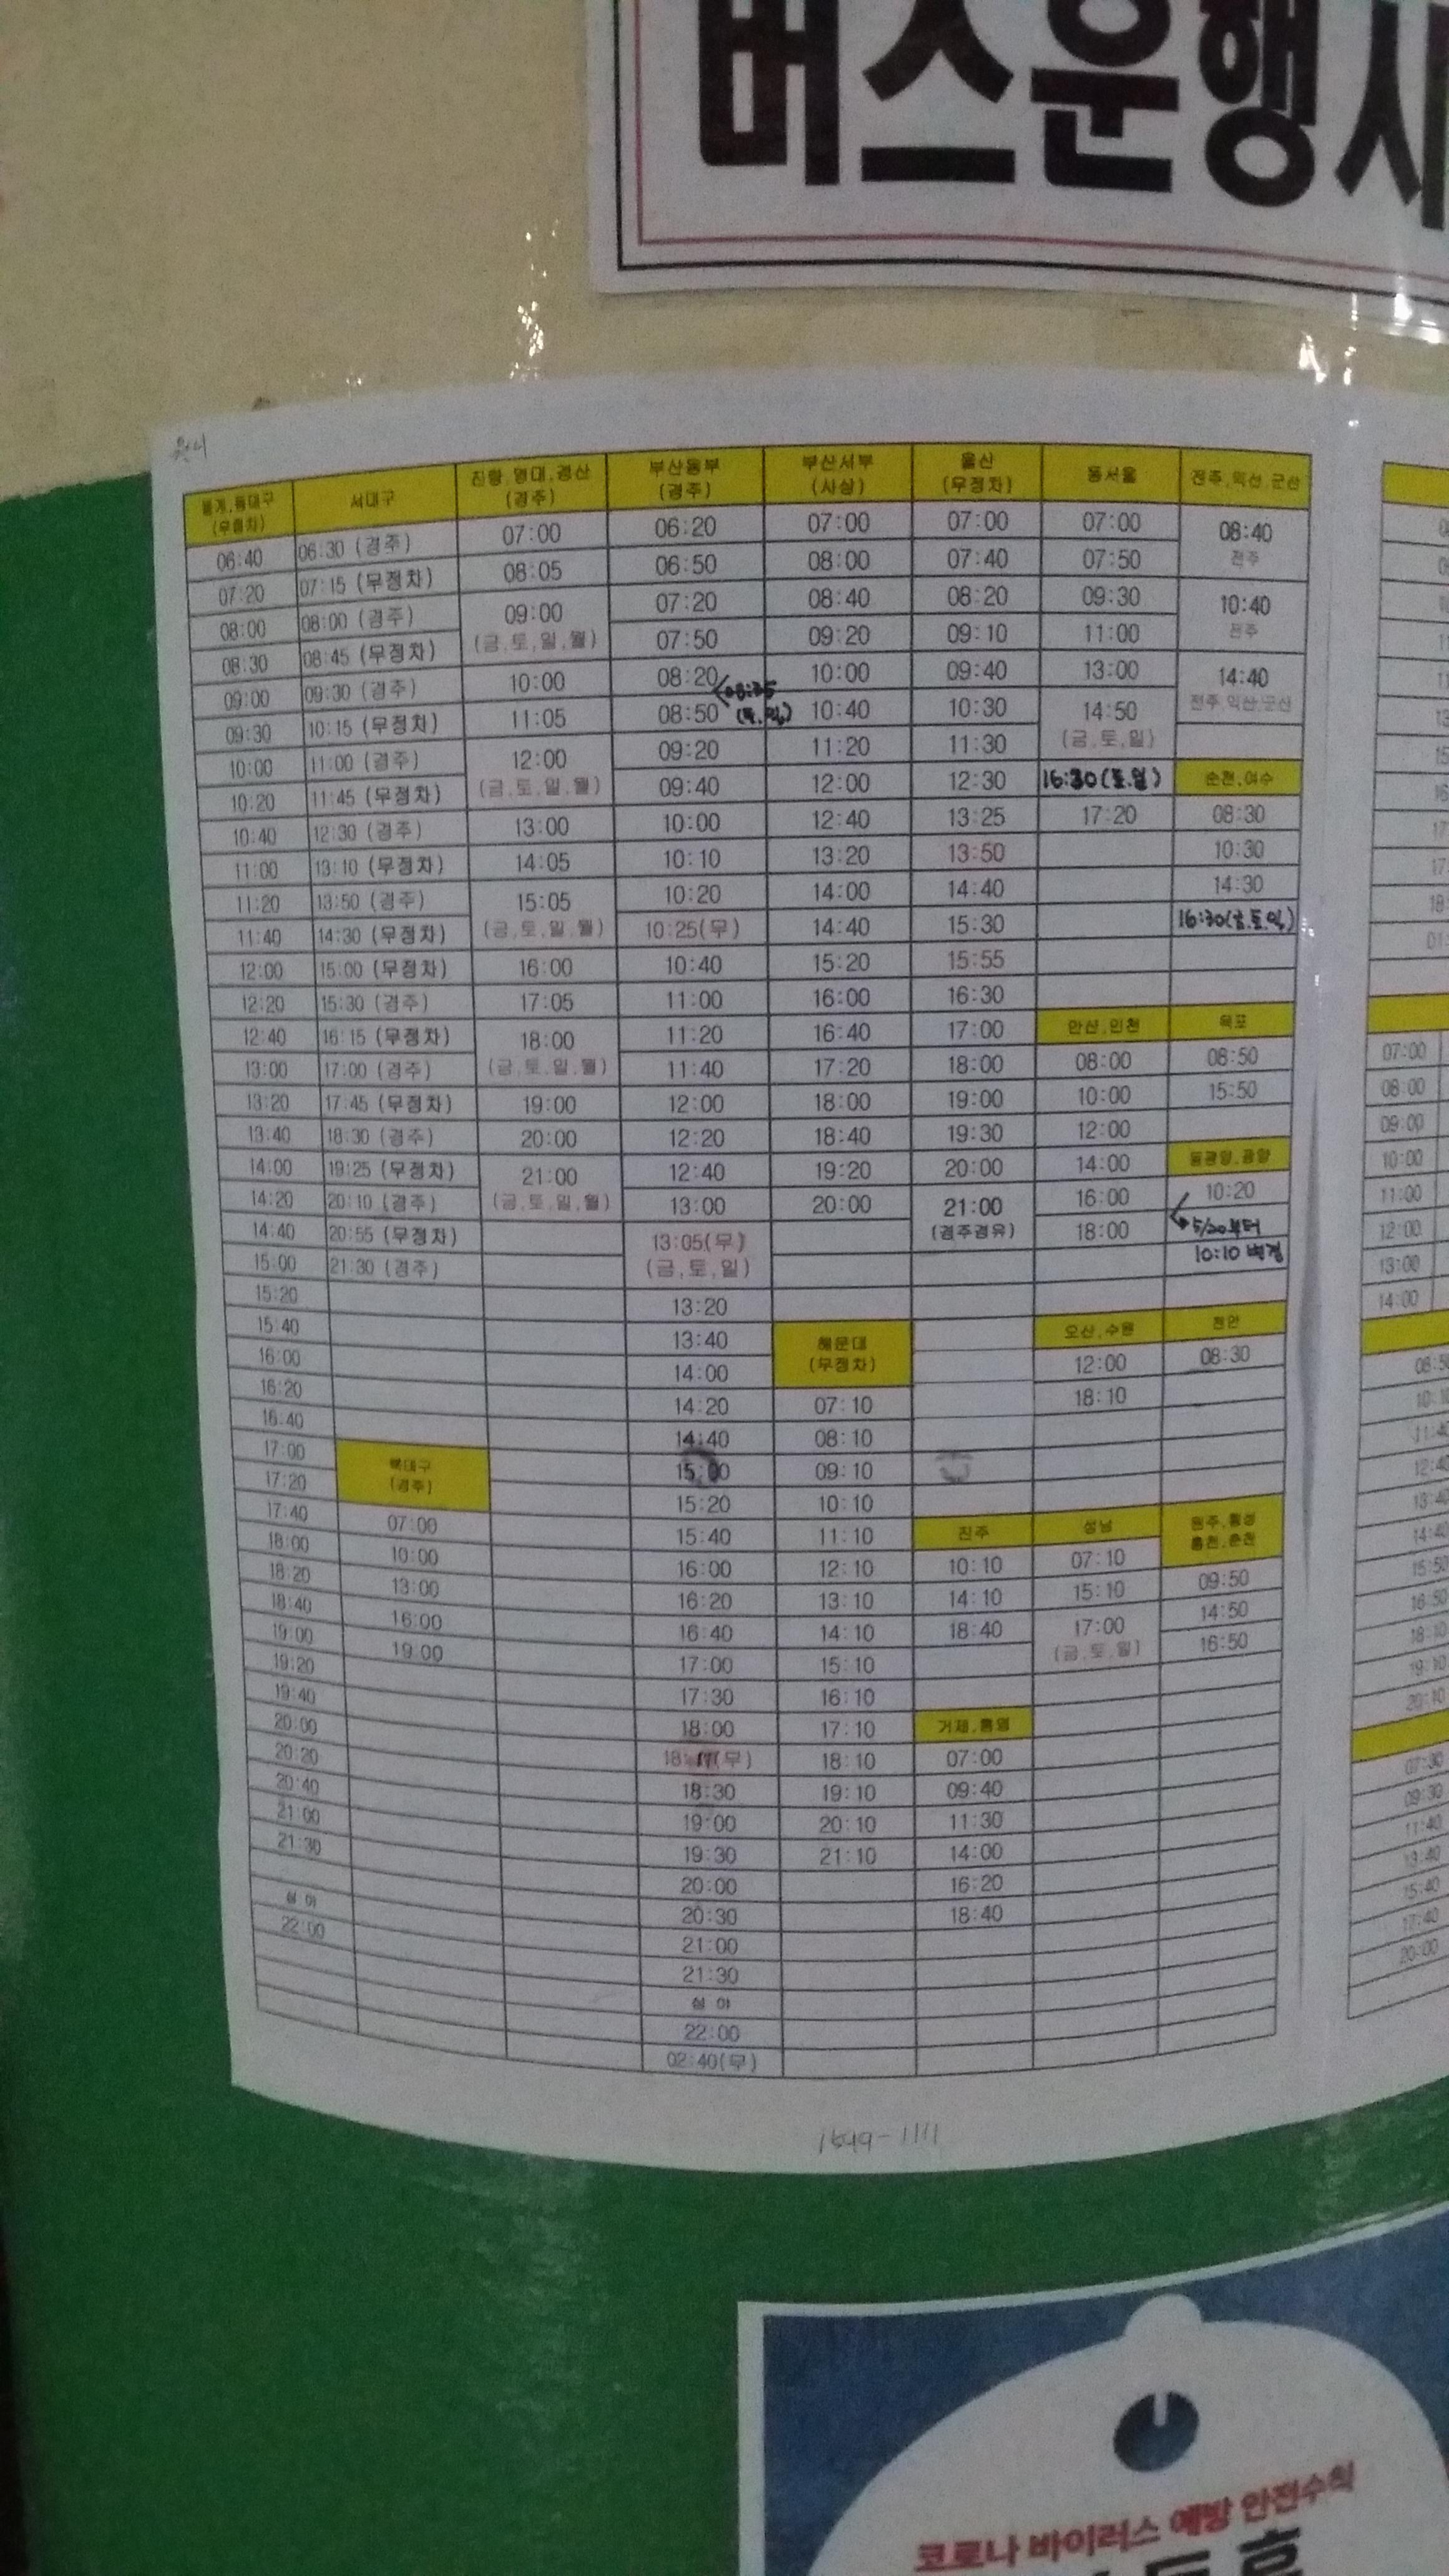 버스운행시
동계,동대구
(무정차)
06:40
07:20
08:00
08:30
09:00
09:30
10:00
10:20
10:40
11:00
11:20
11:40
12:00
12:20
12:40
13:00
13:20
13:40
14:00
14:20
14:40
15:00
15:20
15:40
16:00
16:20
16:40
17:00
17:20
17:40
18:00
18:20
18:40
19:00
19:20
19:40
20:00
20:20
20:40
21:00
21:30
심 야
22:00
서대구
06:30 (경주)
07:15 (무정차)
08:00 (경주)
08:45 (무정차)
09:30 (경주)
10:15 (무정차)
11:00 (경주)
11:45 (무정차)
12:30 (경주)
13:10 (무정차)
13:50 (경주)
14:30 (무정차)
15:00 (무정차)
15:30 (경주)
16:15 (무정차)
17:00 (경주)
17:45 (무정차)
18:30 (경주)
19:25 (무정차)
20:10 (경주)
20:55 (무정차)
21:30 (경주)
북대구
(경주)
07:00
10:00
13:00
16:00
19:00
진량,영대,경산
(경주)
07:00
08:05
09:00
(금,토,일,월)
10:00
11:05
12:00
(금,토,일,월)
13:00
14:05
15:05
(금,토,일,월)
16:00
17:05
18:00
(금,토,일,월)
19:00
20:00
21:00
(금,토,일,월)
부산동부
(경주)
06:20
06:50
07:20
07:50
08:20
08:35
(토,일)
08:50
09:20
09:40
10:00
10:10
10:20
10:25(무)
10:40
11:00
11:20
11:40
12:00
12:20
12:40
13:00
13:05(무)
(금,토,일)
13:20
13:40
14:00
14:20
14:40
15:00
15:20
15:40
16:00
16:20
16:40
17:00
17:30
18:00
(무)
18:30
19:00
19:30
20:00
20:30
21:00
21:30
심 야
22:00
02:40(무)
부산서부
(사상)
07:00
08:00
08:40
09:20
10:00
10:40
11:20
12:00
12:40
13:20
14:00
14:40
15:20
16:00
16:40
17:20
18:00
18:40
19:20
20:00
해운대
(무정차)
07:10
08:10
09:10
10:10
11:10
12:10
13:10
14:10
15:10
16:10
17:10
18:10
19:10
20:10
21:10
울산
(무정차)
07:00
07:40
08:20
09:10
09:40
10:30
11:30
12:30
13:25
13:50
14:40
15:30
15:55
16:30
17:00
18:00
19:00
19:30
20:00
21:00
(경주경유)
진주
10:10
14:10
18:40
거제,통영
07:00
09:40
11:30
14:00
16:20
18:40
동서울
07:00
07:50
09:30
11:00
13:00
14:50
(금,토,일)
16:30(토.일)
17:20
안산,인천
08:00
10:00
12:00
14:00
16:00
18:00
오산,수원
12:00
18:10
성남
07:10
15:10
17:00
(금,토,일)
전주,익산,군산
08:40
전주
10:40
전주
14:40
전주,익산,군산
순천,여수
08:30
10:30
14:30
16:30(금.토.일)
목포
08:50
15:50
동광양,광양
10:20
5/20부터
10:10 변경
천안
08:30
원주,횡성
홍천,춘천
09:50
14:50
16:50
07:00
08:00
09:00
10:00
11:00
12:00
13:00
14:00
1649-1111
코로나 바이러스 예방 안전수칙